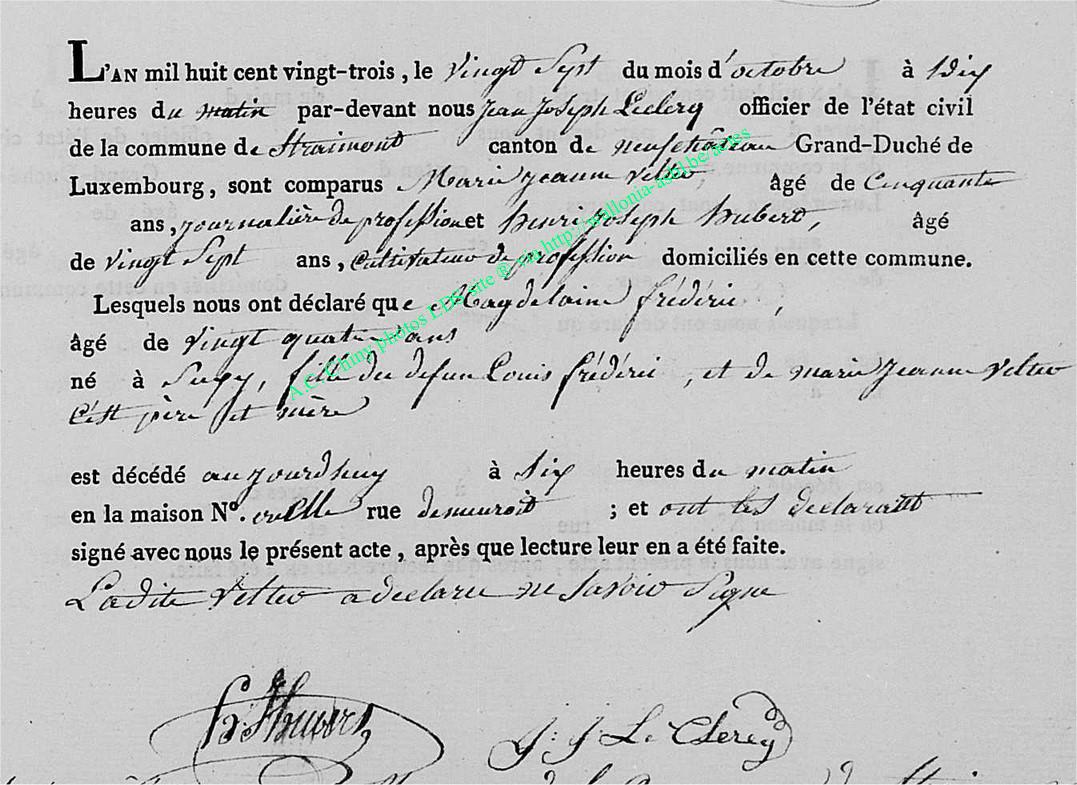 L'AN mil huit cent vingt-trois, le vingt Sept du mois d'octobre à dix
heures du matin par-devant nous Jean Joseph Leclerq officier de l'état civil
de la commune de Straimont canton de neufchâteau Grand-Duché de
Luxembourg, sont comparus Marie Jeanne Velter, âgé de Cinquante
ans, journalière de profession et henri Joseph hubert, âgé
de vingt Sept ans, Cultivateur de profession domiciliés en cette commune.
Lesquels nous ont déclaré que Magdelaine frédéric,
âgé de vingt quatre ans
né à Sugy, fille du defun Louis frédéric, et de marie Jeanne Velter
C'est père et mère
est décédé aujourdhuy à Six heures du matin
en la maison N°. ou Elle rue demeuroit ; et ont les declarant
signé avec nous le présent acte, après que lecture leur en a été faite.
Ladite Velter a declaré ne Savoir Signe
h. J. hubert
J: J Le Clereq
A.C. Chiny photos LDG site ® via http://wallonia-asbl.be/actes